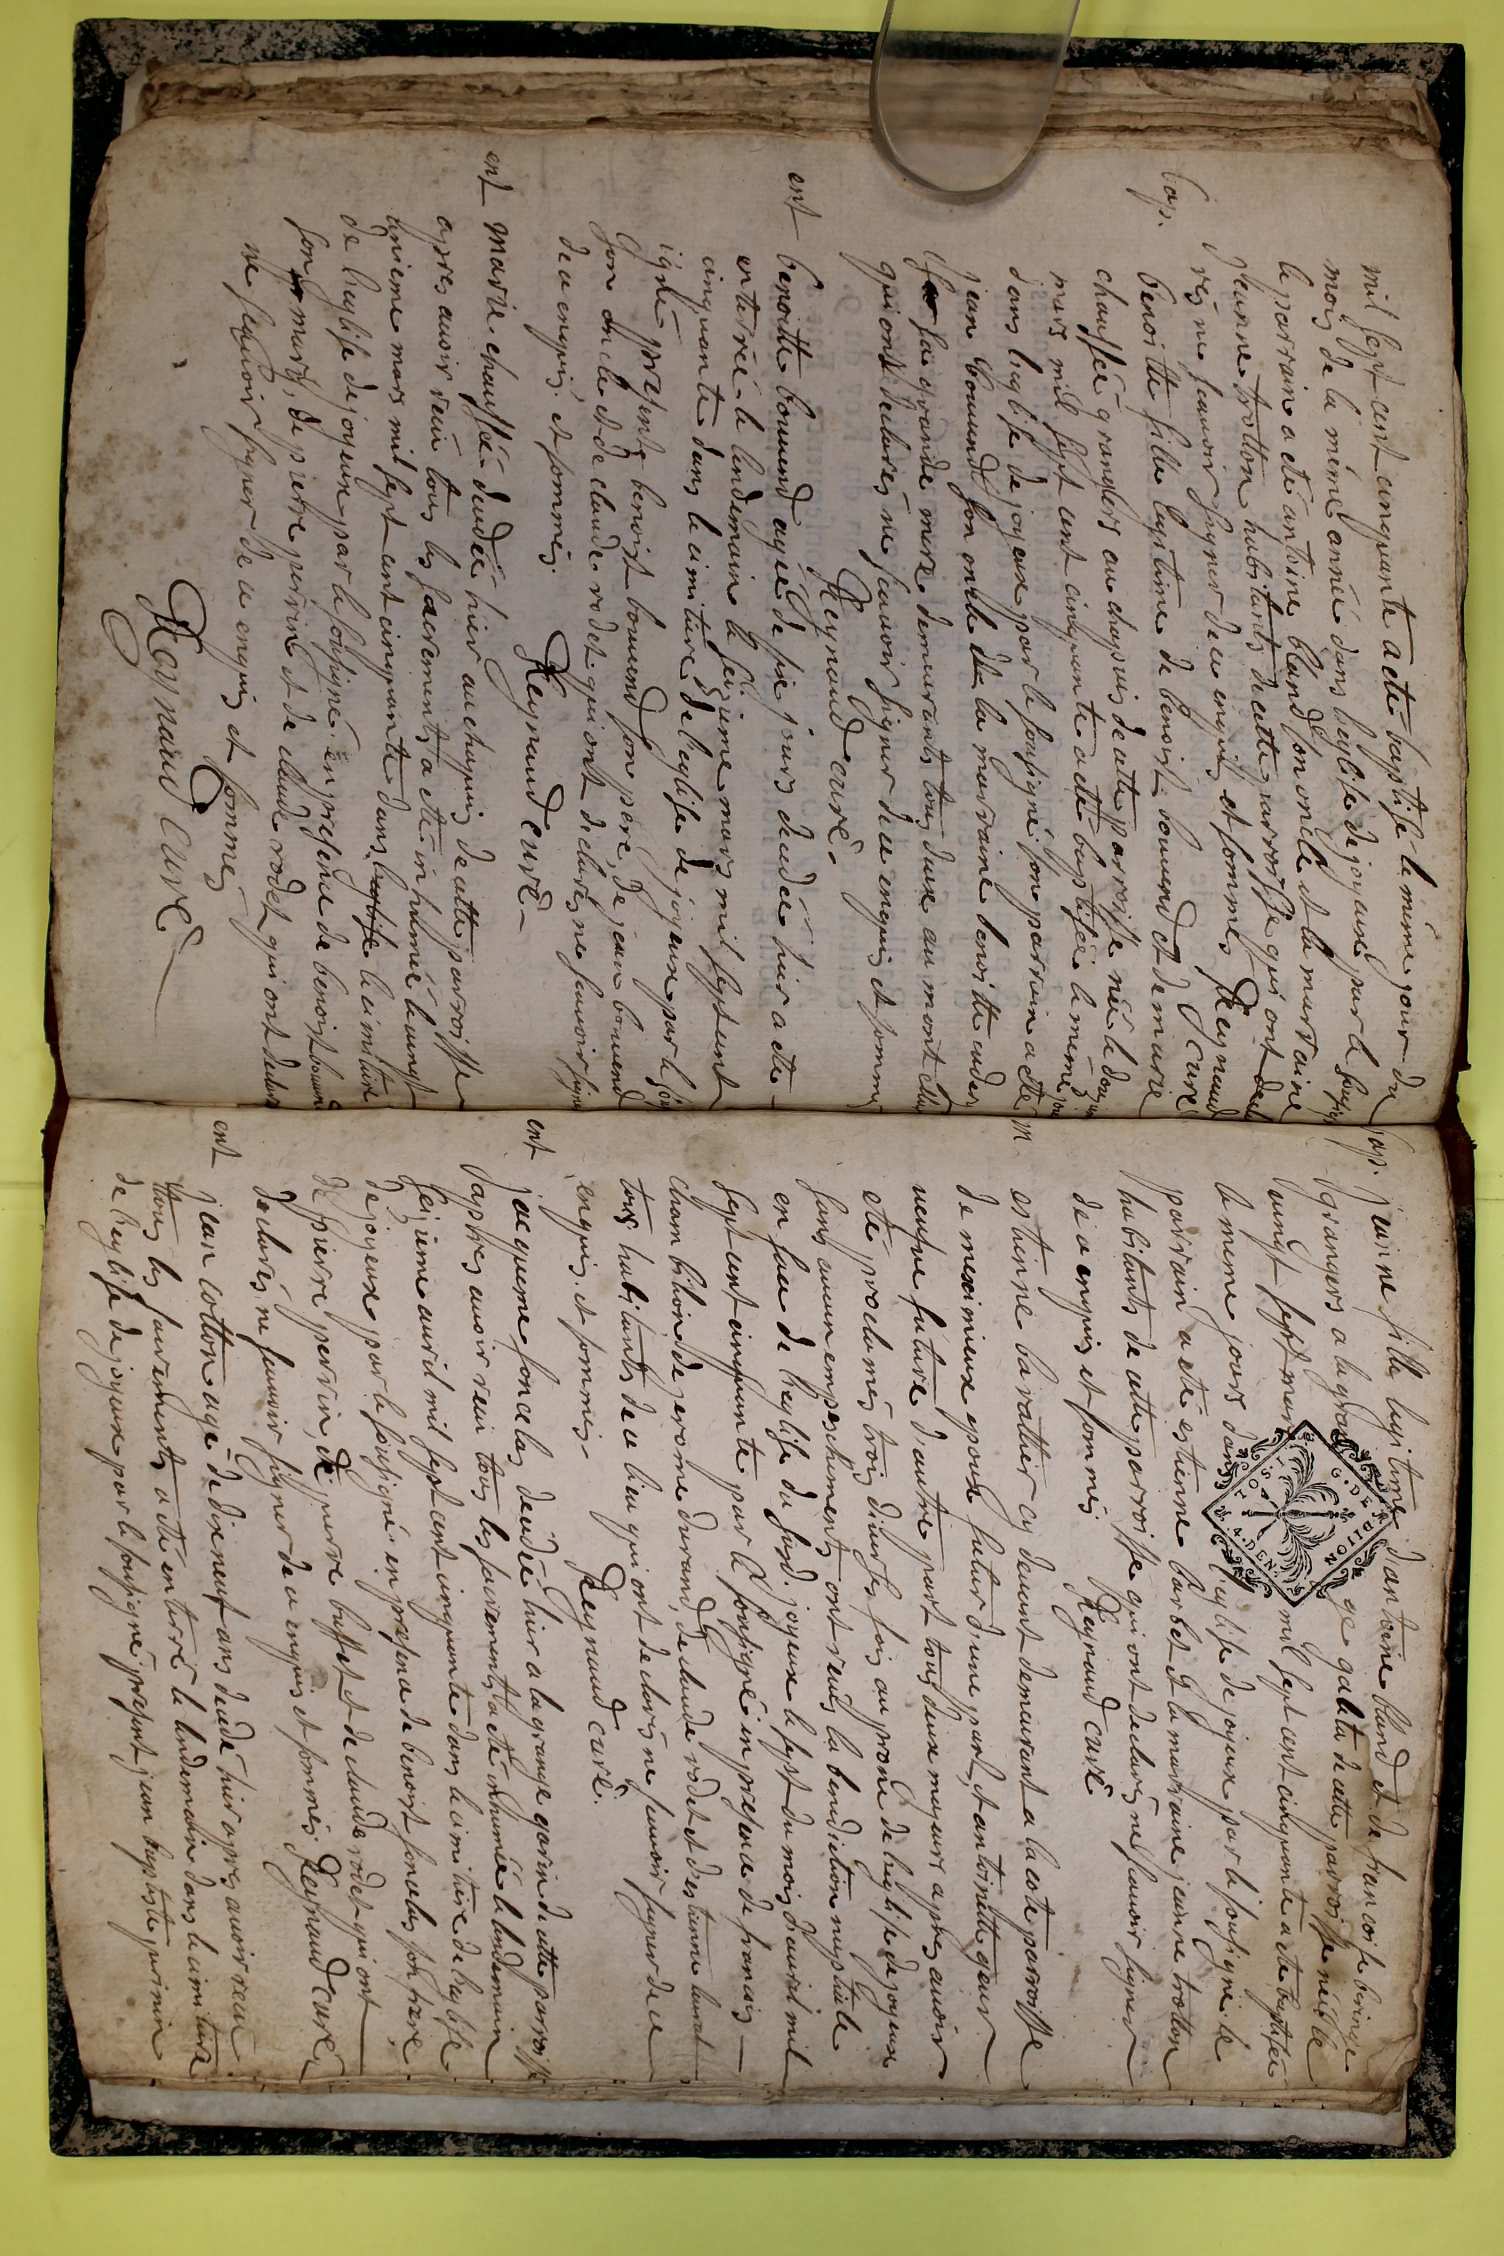 mil sept cent cinquante a eté baptisé le même jour du
mois de la même année dans leglise de joyeux par le soussigné
le parrain a eté antoine bland son oncle et la marraine
jeanne trotton habitants de cette parroisse qui ont decla
rés ne scavoir signer de ce enquis et sommés Reynaud
curé
bap. benoitte fille legitime de benoist bouvend et de marie
chaussée grangers au chapuis de cette parroisse née le douze
mars mil sept cent cinquante a eté baptisée le même jour
dans leglise de joyeux par le soussigné son parrain a eté
jean bouvend son oncle la marraine benoitte
sa grande mere demeurants tous deux au mont
qui ont declarés ne scavoir signer de ce enquis et sommés
Reynaud curé.
ent benoitte bouvend agée de six jours decedée hier a eté
enterrée le lendemain le seizieme mars mil sept cent
cinquante dans le cimitiere de leglise de joyeux par le sous
signé presents benoist bouvend son pere, de jean bouvend
son oncle et de claude rodet qui ont declarés ne scavoir signer
de ce enquis et sommés.
Reynaud curé
ent marie chaussée decedée hier au chapuis de cette parroisse
apres avoir receu tous les sacrements a eté inhumée le vingt
unieme mars mil sept cent cinquante dans le cimitiere
de leglise de joyeux par le soussigné en presence de benoist bouvend
son mary, de pierre perrin et de claude rodet qui ont declarés
ne scavoir signer de ce enquis et sommés
Reynaud curé
bap. jeanne fille legitime d'antoine bland et de francoise
grangers a la grange galita de cette parroisse née le
vingt sept mars mil sept cent cinquante a eté baptisée
le meme jours dans leglise de joyeux par le soussigné le
parrain a eté estienne barbet et la marraine jeanne trotton
habitants de cette parroisse qui ont declarés ne scavoir signer
de ce enquis et sommés Reynaud curé
G. DE
LION
IOS. I
4. DEN.
m estienne barattier cy devant demeurant a la cote parroisse
de meximieux epoux futur d'une part, et antoinette
veufve future d'autre part tous deux majeurs apres avoir
eté proclamés trois diverses fois au prone de leglise de joyeux
sans aucun empeschements ont receus la benediction nuptiale
en face de leglise du susd. joyeux le sept du mois d'avril mil
sept cent cinquante par le soussigné en presence de francois
chambillion de jerome durand, de claude rodet et d'estienne
tous habitants de ce lieu qui ont declarés ne scavoir signer de ce
enquis et sommés. Reynaud curé.
ent jacqueme foncelas decedée hier a la grange garin de cette parroisse
d'appres avoir receu tous les sacrements a eté inhumée le lendemain
seizieme avril mil sept cent cinquante dans le cimitiere de leglise
de joyeux par le soussigné en presence de benoist foncelas son frere
de pierre perrin, de pierre buffet et de claude rodet qui ont
declarés ne scavoir signer de ce enquis et sommés Reynaud curé
ent jean cotton agé de dix neuf ans decedé hier apres avoir receu
tous les sacrements a eté enterré le lendemain dans le cimitiere
de leglise de joyeux par le soussigné present jean baptiste